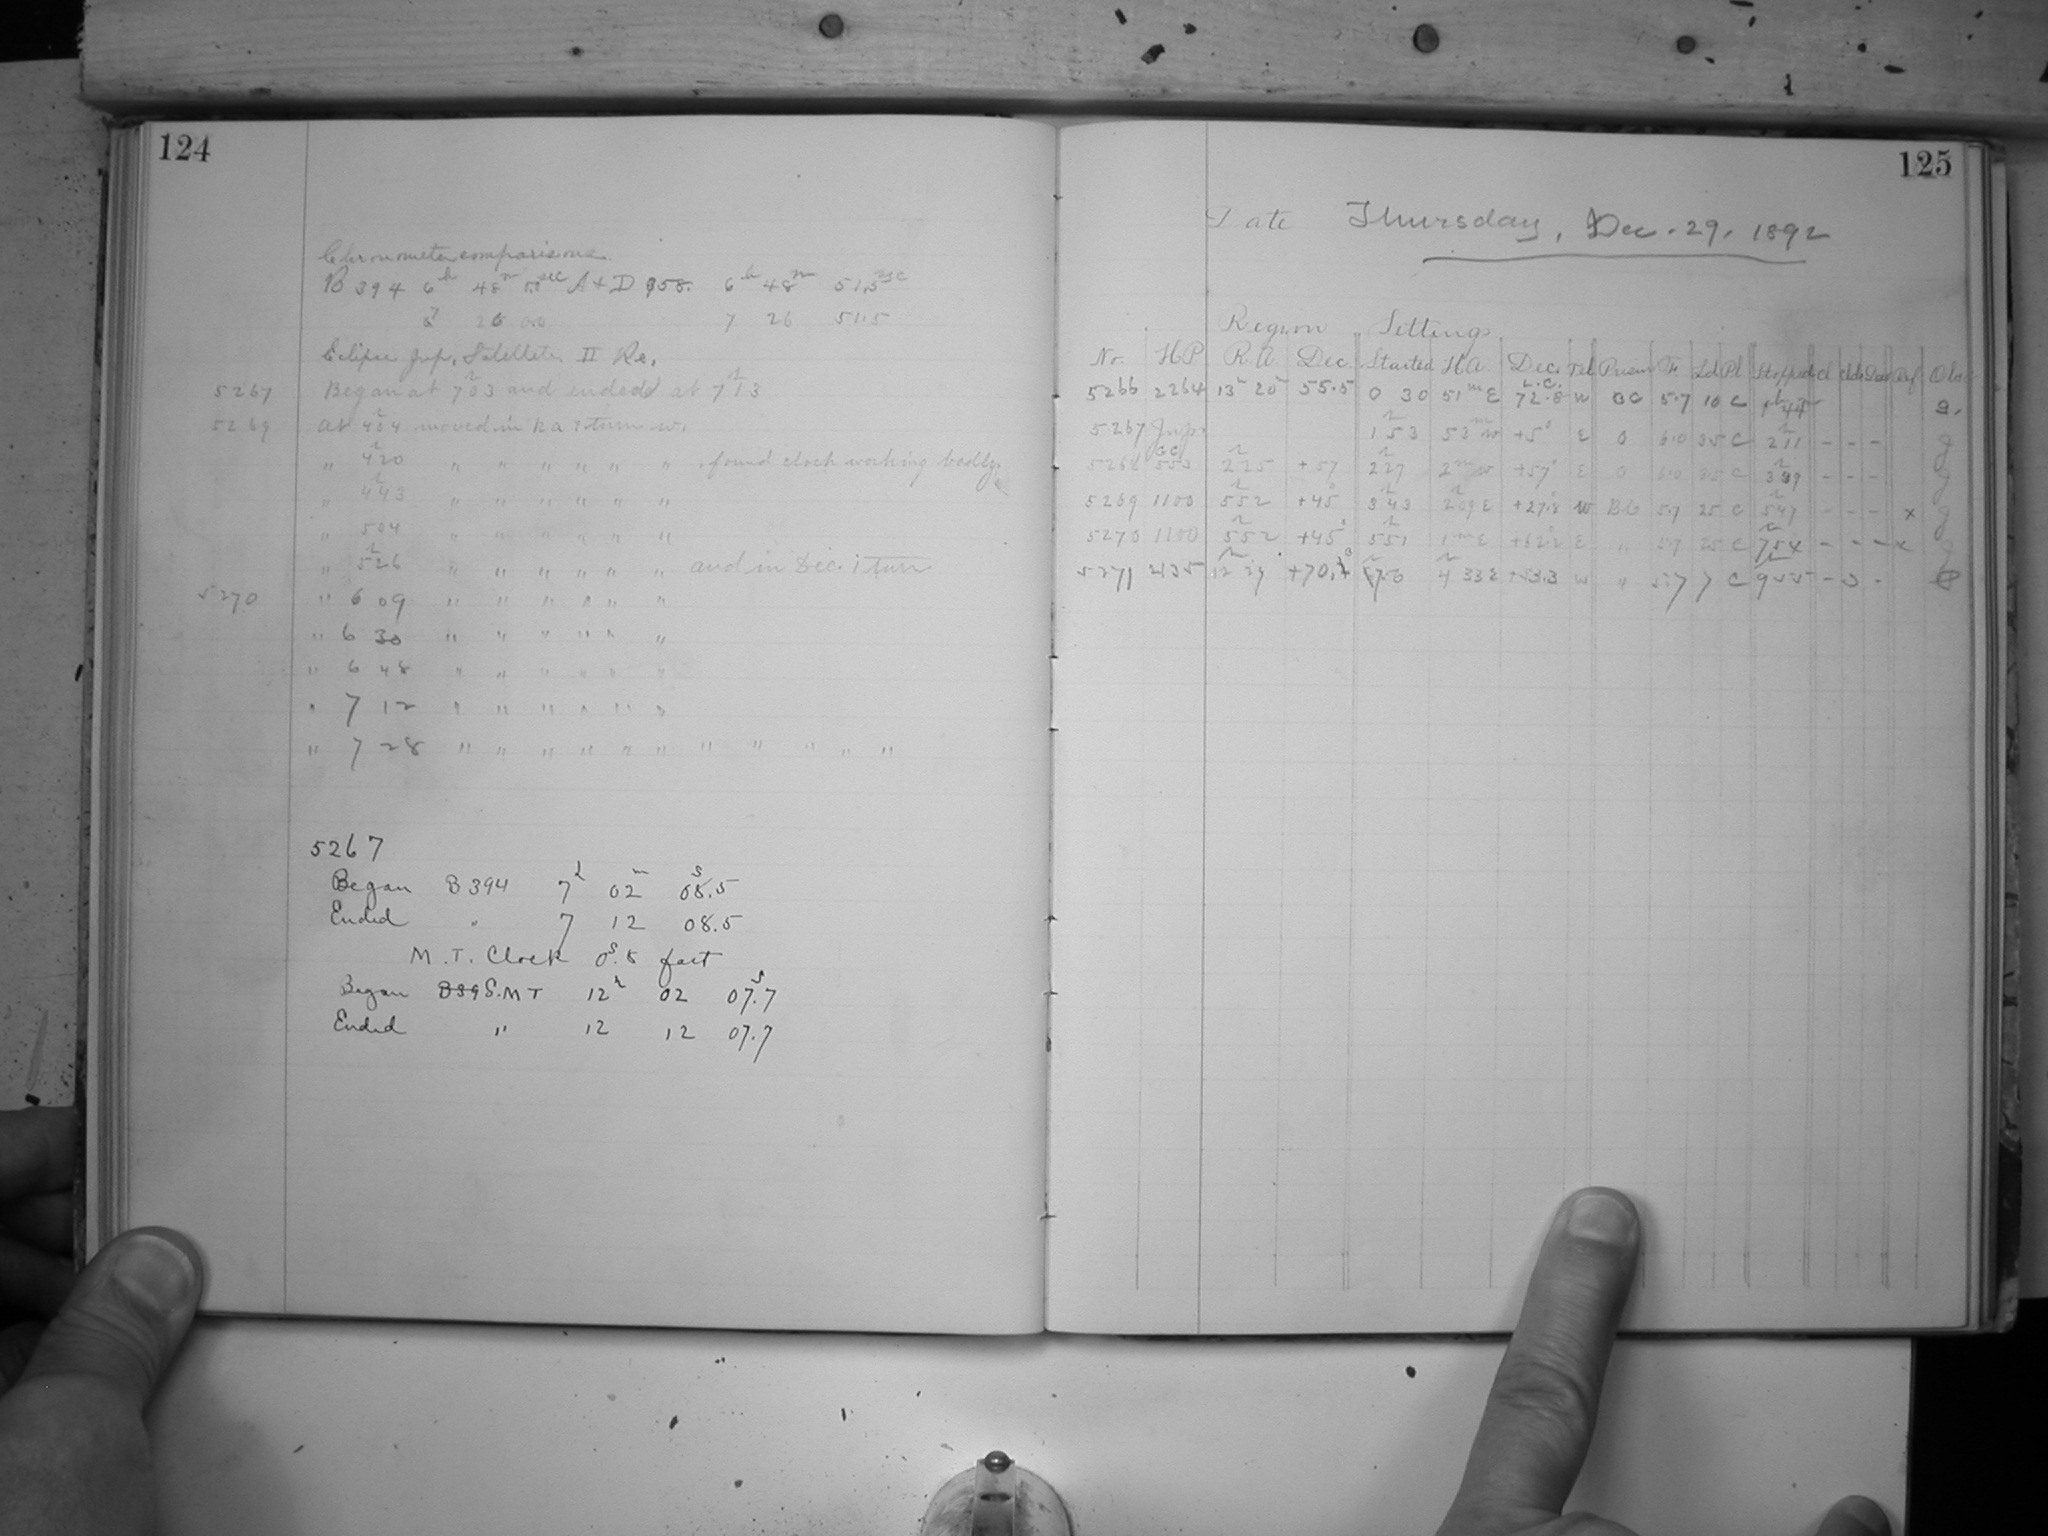 124
Chronometer comparisons.
B 394 6h 48m sec A + D 958. 6h 48m 51.5sec
7 26 00 7 26 51.5
Eclipse Jup. Satellites II Re.
5267 Began at 7h03 and ended at 7h13
5269 at 4h04 moved in R a 1 turn w.
" 4h20 " " " " " " found clock working badly.
" 4h43 " " " " " "
" 504 " " " " " "
" 5h26 " " " " " " and in Dec. 1 turn
5270 " 6 09 " " " " " "
" 6 30 " " " " " "
" 6 48 " " " " " "
" 7 12 " " " " " "
" 7 28 " " " " " " " " " " "
5267
Began B 394 7h 02m 08.5s
Ended " 7 12 08.5
M. T. Clock 0s.8 fast
Began B39 S.M T 12h 02 07.7s
Ended " 12 12 07.7
125
Date Thursday, Dec. 29. 1892
Region Settings
No. H P R. A. Dec. Started H A Dec. Tel Prism F. Ld Pl Stopped Cl Clds Ref Obs
5266 2264 13h 20m 55.5 0 30 51m E L.C. 72.8 W BC 5.7 10 C 1h 44m g.
5267 Jup. 1h53 53m w +5° E 0 610 35 C 2h11 - - - g
5268 GC 553 2h25 +57 2h27 2m w +57° E 0 610 35 C 3h39 - - - g
5269 1100 5h52 +45° 3h43 2h09 E +27.8 W BC 5.7 25 C 5h47 - - - x g
5270 1100 5h52 +45° 5h51 1m E +62.2 E " 5.7 25 C 7h54 - - - x g
5271 2135 12h 29 +70. 4h 33 E +53.3 w " 5.7 7 C 9 55 - 0 -